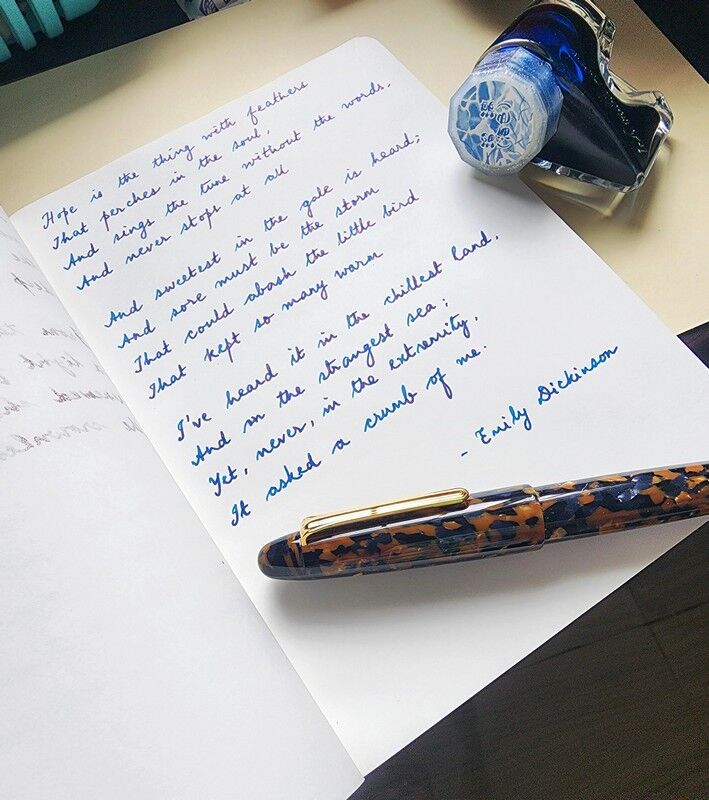 Hope is the thing with feathers
That perches in the soul,
And sings the tune without the words,
And never stops at all
And sweetest in the gale is heard;
And sore must be the storm
That could abash the little bird
That kept so many warm
I've heard it in the chillest land,
And on the strangest sea;
Yet, never, in the extremity,
It asked a crumb of me.
- Emily Dickinson